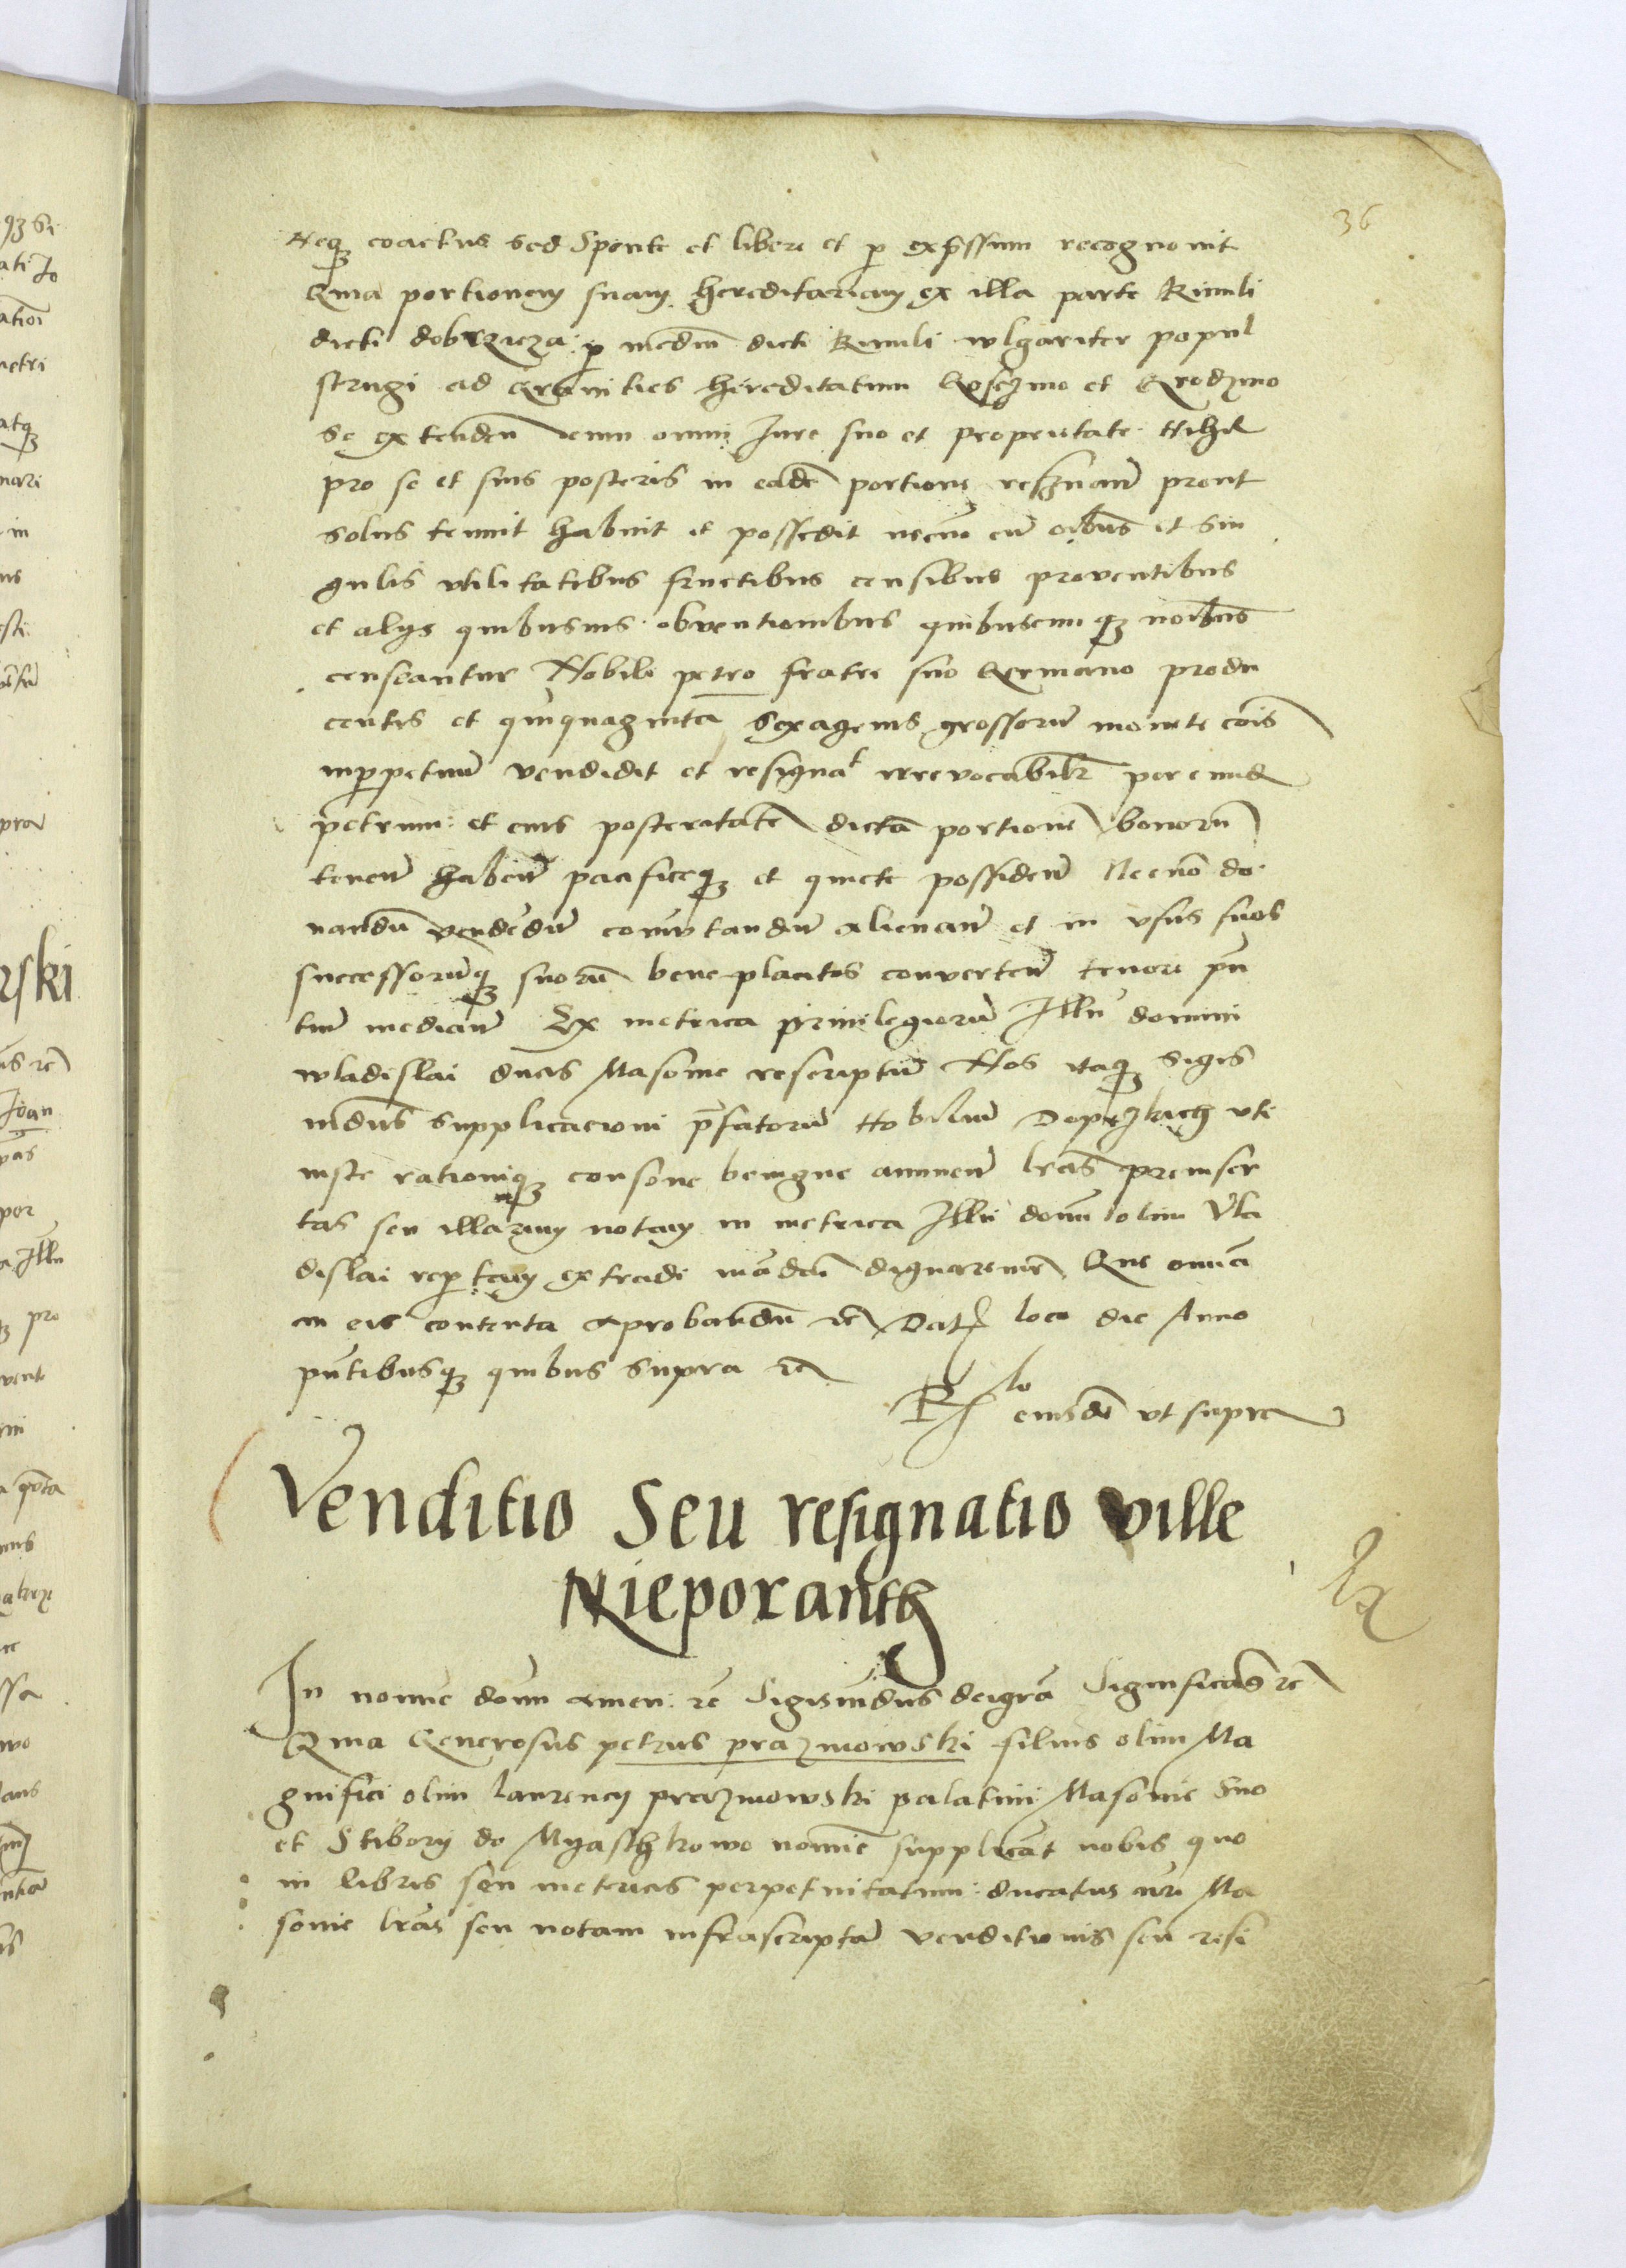 36
Neq3 coactus sed Sponte et libere et p exp̄ssum recognouit
Quia portionem suam hereditariam ex illa parte Riuuli
dicti dobrzicza p mediū dicti Riuuli wlgariter popul
strugi ad Granities hereditatum et Grodzino
se extenden̄ cum omni Iure suo et proprietate Nihil
pro se et suis posteris in eadē portione resignan̄ prout
solus tenuit habuit et possedit necno cū oībus et sin
gulis vtilitatibus fructibus censibus prouentibus
et alijs quibusuis obuentionibus quibuscunq3 noībus
censeantur Nobili petro fratri suo Germano pro du
centis et quinquaginta Sexagenis grossorū monete cōis
inperpetuū vendidit et resignat irreuocabilr per eund
petrum et eius posteritatē dictā portionē bonorū
tenen̄ haben̄ pacificeq3 et quiete possiden̄ Necnō do
nandū vendēdū comūtandū alienan̄ et in vsus suos
successorūq3 suorū bene placitos conuerten̄ tenore pn̄
tiū median̄ Ex metrica priuilegiorū Illū domini
wladislai ducis Masouie rescriptū Nos itaq3 Sigis
mūdus Supplicacioni p̄fatorū Nobiliū vti
iuste rationiq3 consone benigne annuen̄ lrās preinser
tas seu illarum notam in metrica Illū domī olim Vla
dislai repertam extradi mādaū dignaremur Que omīa
in eis contenta aprobandū rc Dat loco die Anno
pn̄tibusq3 quibus supra rc
Rlo eiusdē vt supra
Venditio Seu resignatio ville
Nieporanth
In nomīe domī amen rc Sigismūdus dei grā Significas rc
Quia Generosus petrus prazmowski filius olim Ma
gnifici olim laurencij prazmowski palatini Masouie Suo
et Stiborij de Myaschkowo nomīe supplicāt nobis quo
in libris seu metricis perpetuitatum ducatus nrī Ma
souie lrās seu notam infrascriptā venditionis seu resi